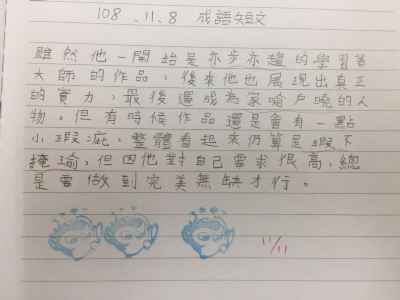 108.11.8 成語短文
雖然他一開始是亦步亦趨的學習着
大師的作品，後來他也展現出真正
的實力，最後還成為家喻戶曉的人
物。但有時候作品還是會有一點
小瑕疵，整體看起來仍算是瑕不
掩瑜，但因他對自己要求很高，總
是要做到完美無缺才行。
11/11